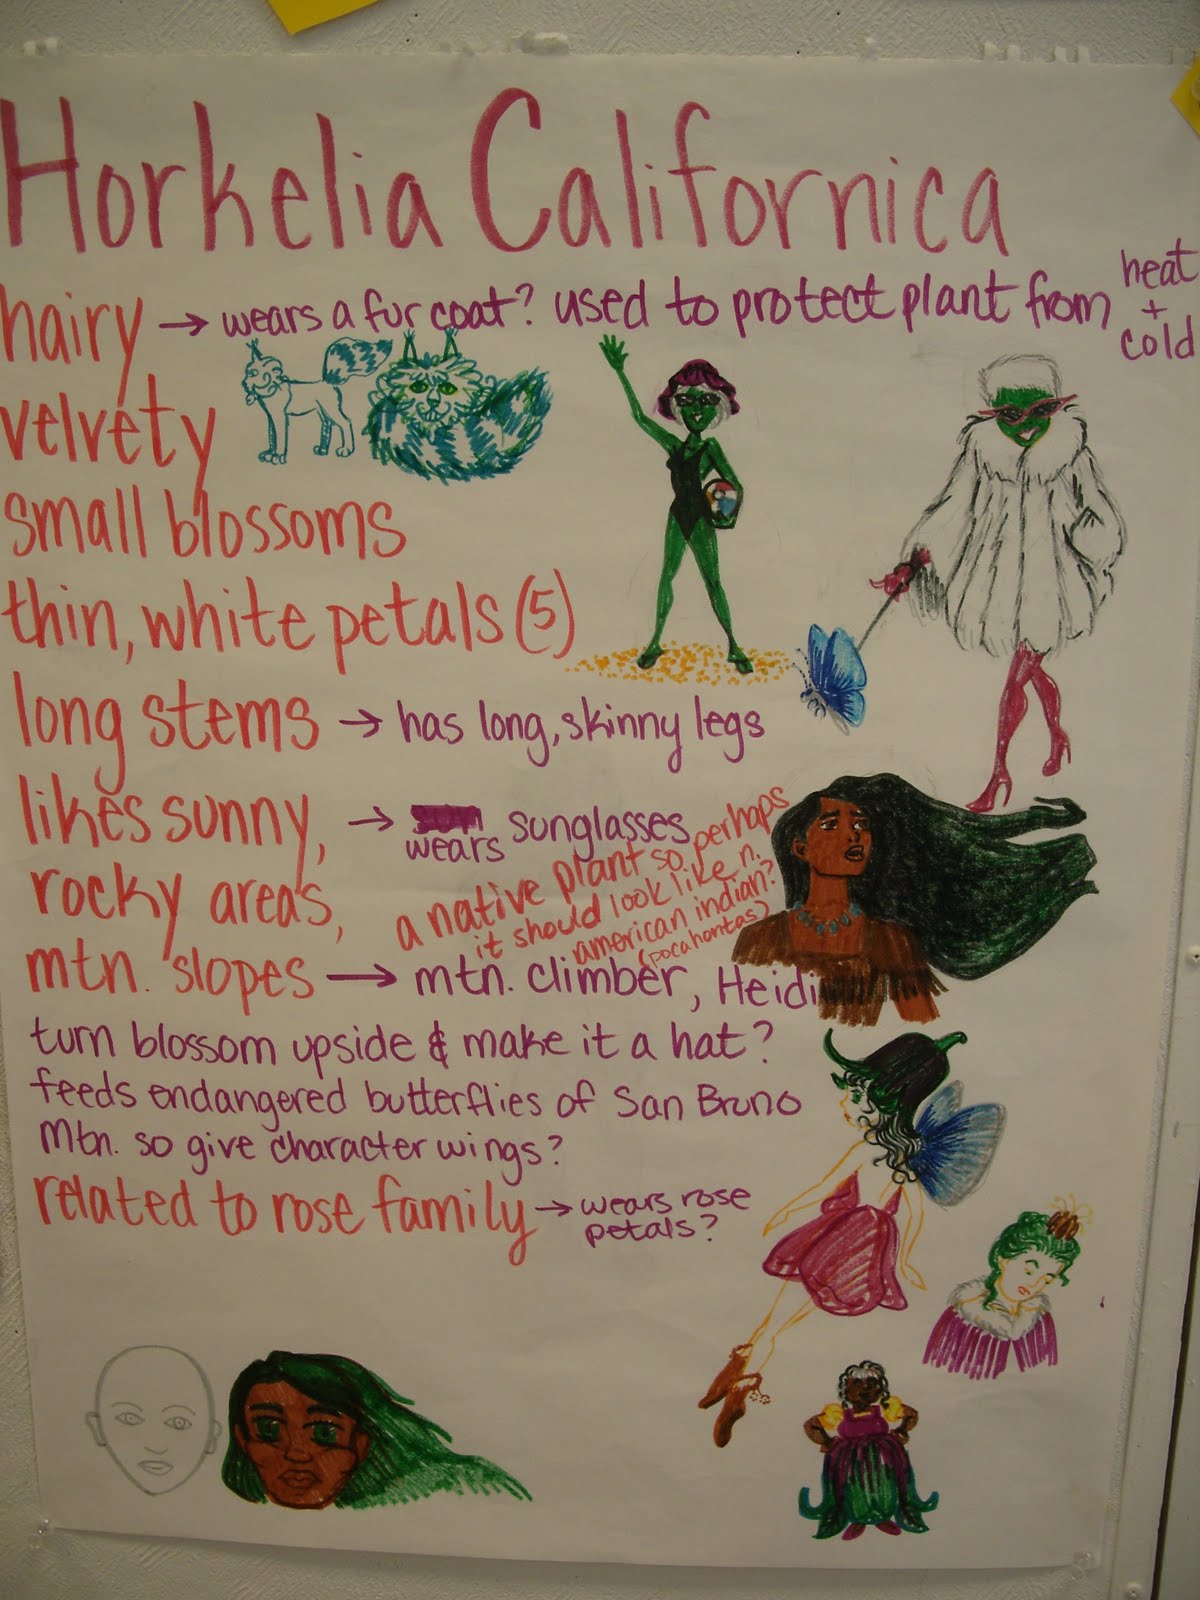 Horkelia Californica
hairy → wears a fur coat? used to protect plant from heat + cold
velvety
small blossoms
thin, white petals (5)
long stems → has long, skinny legs
likes sunny, → wears sunglasses
rocky areas,
a native plant so perhaps
it should look like n.
american indian?
(pocahontas)
mtn. slopes → mtn. climber, Heidi
turn blossom upside & make it a hat?
feeds endangered butterflies of San Bruno
Mtn. so give character wings?
related to rose family → wears rose
petals?